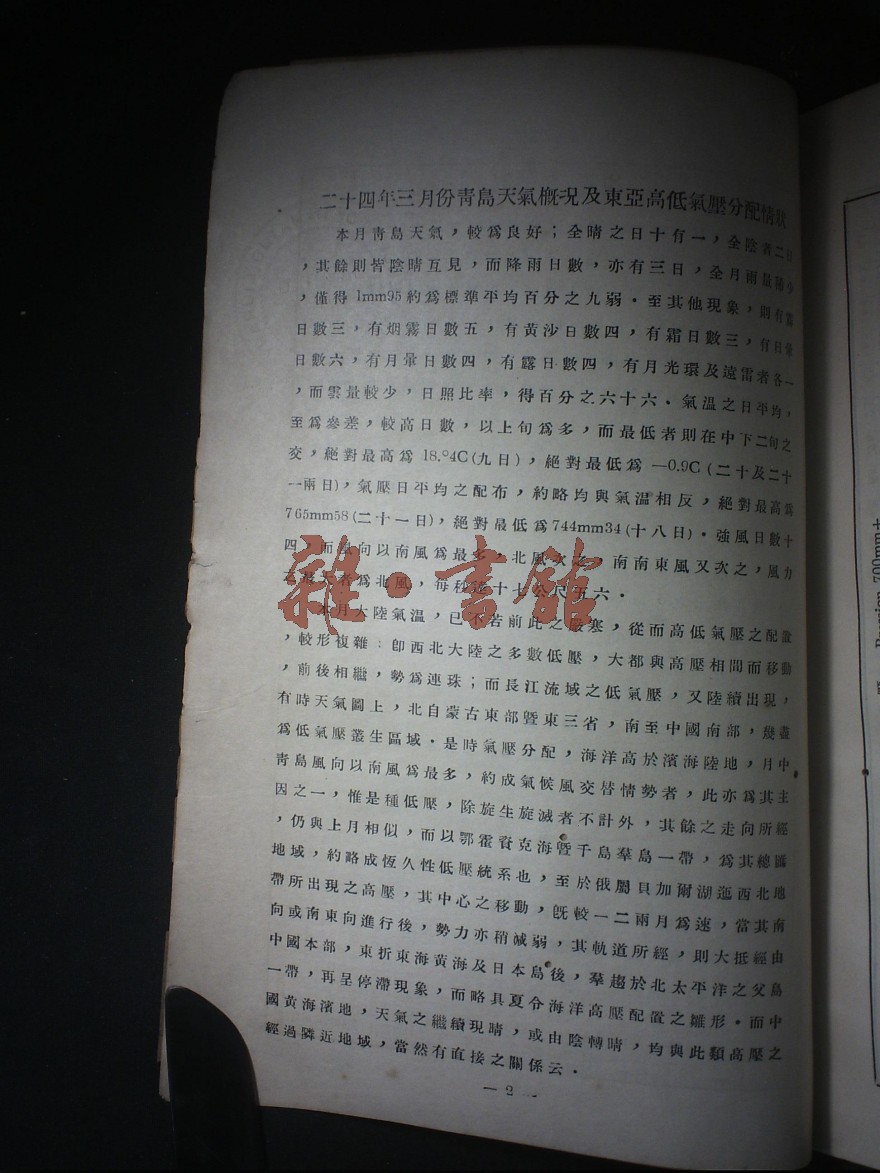 二十四年三月份靑島天氣槪況及東亞高低氣壓分配情狀
本月靑島天氣，較爲良好；全晴之日十有一，全陰者二日
，其餘則皆陰晴互見，而降雨日數，亦有三日，全月雨量稀少
，僅得1mm95約爲標準平均百分之九弱．至其他現象，則有霧
日數三，有烟霧日數五，有黃沙日數四，有霜日數三，有日暈
日數六，有月暈日數四，有露日數四，有月光環及遠雷者各一
，而雲量較少，日照比率，得百分之六十六．氣温之日平均，
至爲參差，較高日數，以上旬爲多，而最低者則在中下二旬之
交，絕對最高爲18.°4C(九日)，絕對最低爲—0.9C(二十及二十
一兩日)，氣壓日平均之配布，約略均與氣温相反，絕對最高爲
765mm58(二十一日)，絕對最低爲744mm34(十八日)．強風日數十
四，而風向以南風爲最多，北風次之，南南東風又次之，風力
之最大者爲北風，每秒達十七公尺五六．
本月大陸氣温，已不若前此之嚴寒，從而高低氣壓之配置
，較形複雜：卽西北大陸之多數低壓，大都與高壓相間而移動
，前後相繼，勢爲連珠；而長江流域之低氣壓，又陸續出現，
有時天氣圖上，北自蒙古東部曁東三省，南至中國南部，幾盡
爲低氣壓叢生區域．是時氣壓分配，海洋高於濱海陸地，月中
靑島風向以南風爲最多，約成氣候風交替情勢者，此亦爲其主
因之一，惟是種低壓，除旋生旋滅者不計外，其餘之走向所經
，仍與上月相似，而以鄂霍資克海曁千島羣島一帶，爲其總匯
地域，約略成恆久性低壓統系也，至於俄屬貝加爾湖迤西北地
帶所出現之高壓，其中心之移動，旣較一二兩月爲速，當其南
向或南東向進行後，勢力亦稍減弱，其軌道所經，則大抵經由
中國本部，東折東海黃海及日本島後，羣趨於北太平洋之父島
一帶，再呈停滯現象，而略具夏令海洋高壓配置之雛形．而中
國黃海濱地，天氣之繼續現晴，或由陰轉晴，均與此類高壓之
經過隣近地域，當然有直接之關係云．
— 2 —
雜·書館
700mm+